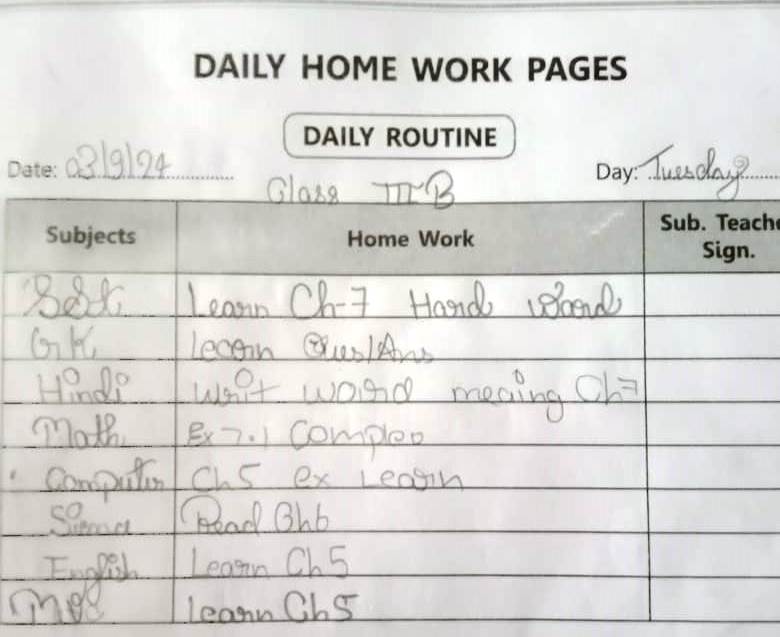 DAILY HOME WORK PAGES
DAILY ROUTINE
Date: 03/9/24 Day: Tuesday
Class III B
Subjects Home Work Sub. Teache
Sign.
S.St Learn Ch-7 Hard Word
GK Learn Ques/Ans
Hindi writ word meaing Ch7
Math Ex 7.1 Compleo
Computer Ch5 ex Learn
Read Ch6
English Learn Ch5
learn Ch5